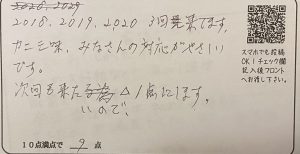 2018.2019.2020 3回発来てます。
カニ三昧、みなさんの対応がやさしい
です。
次回も来た△1点にします。
いので、
スマホでも投稿
OK！チェック欄
記入後フロント
へお渡し下さい。
10点満点で 9 点